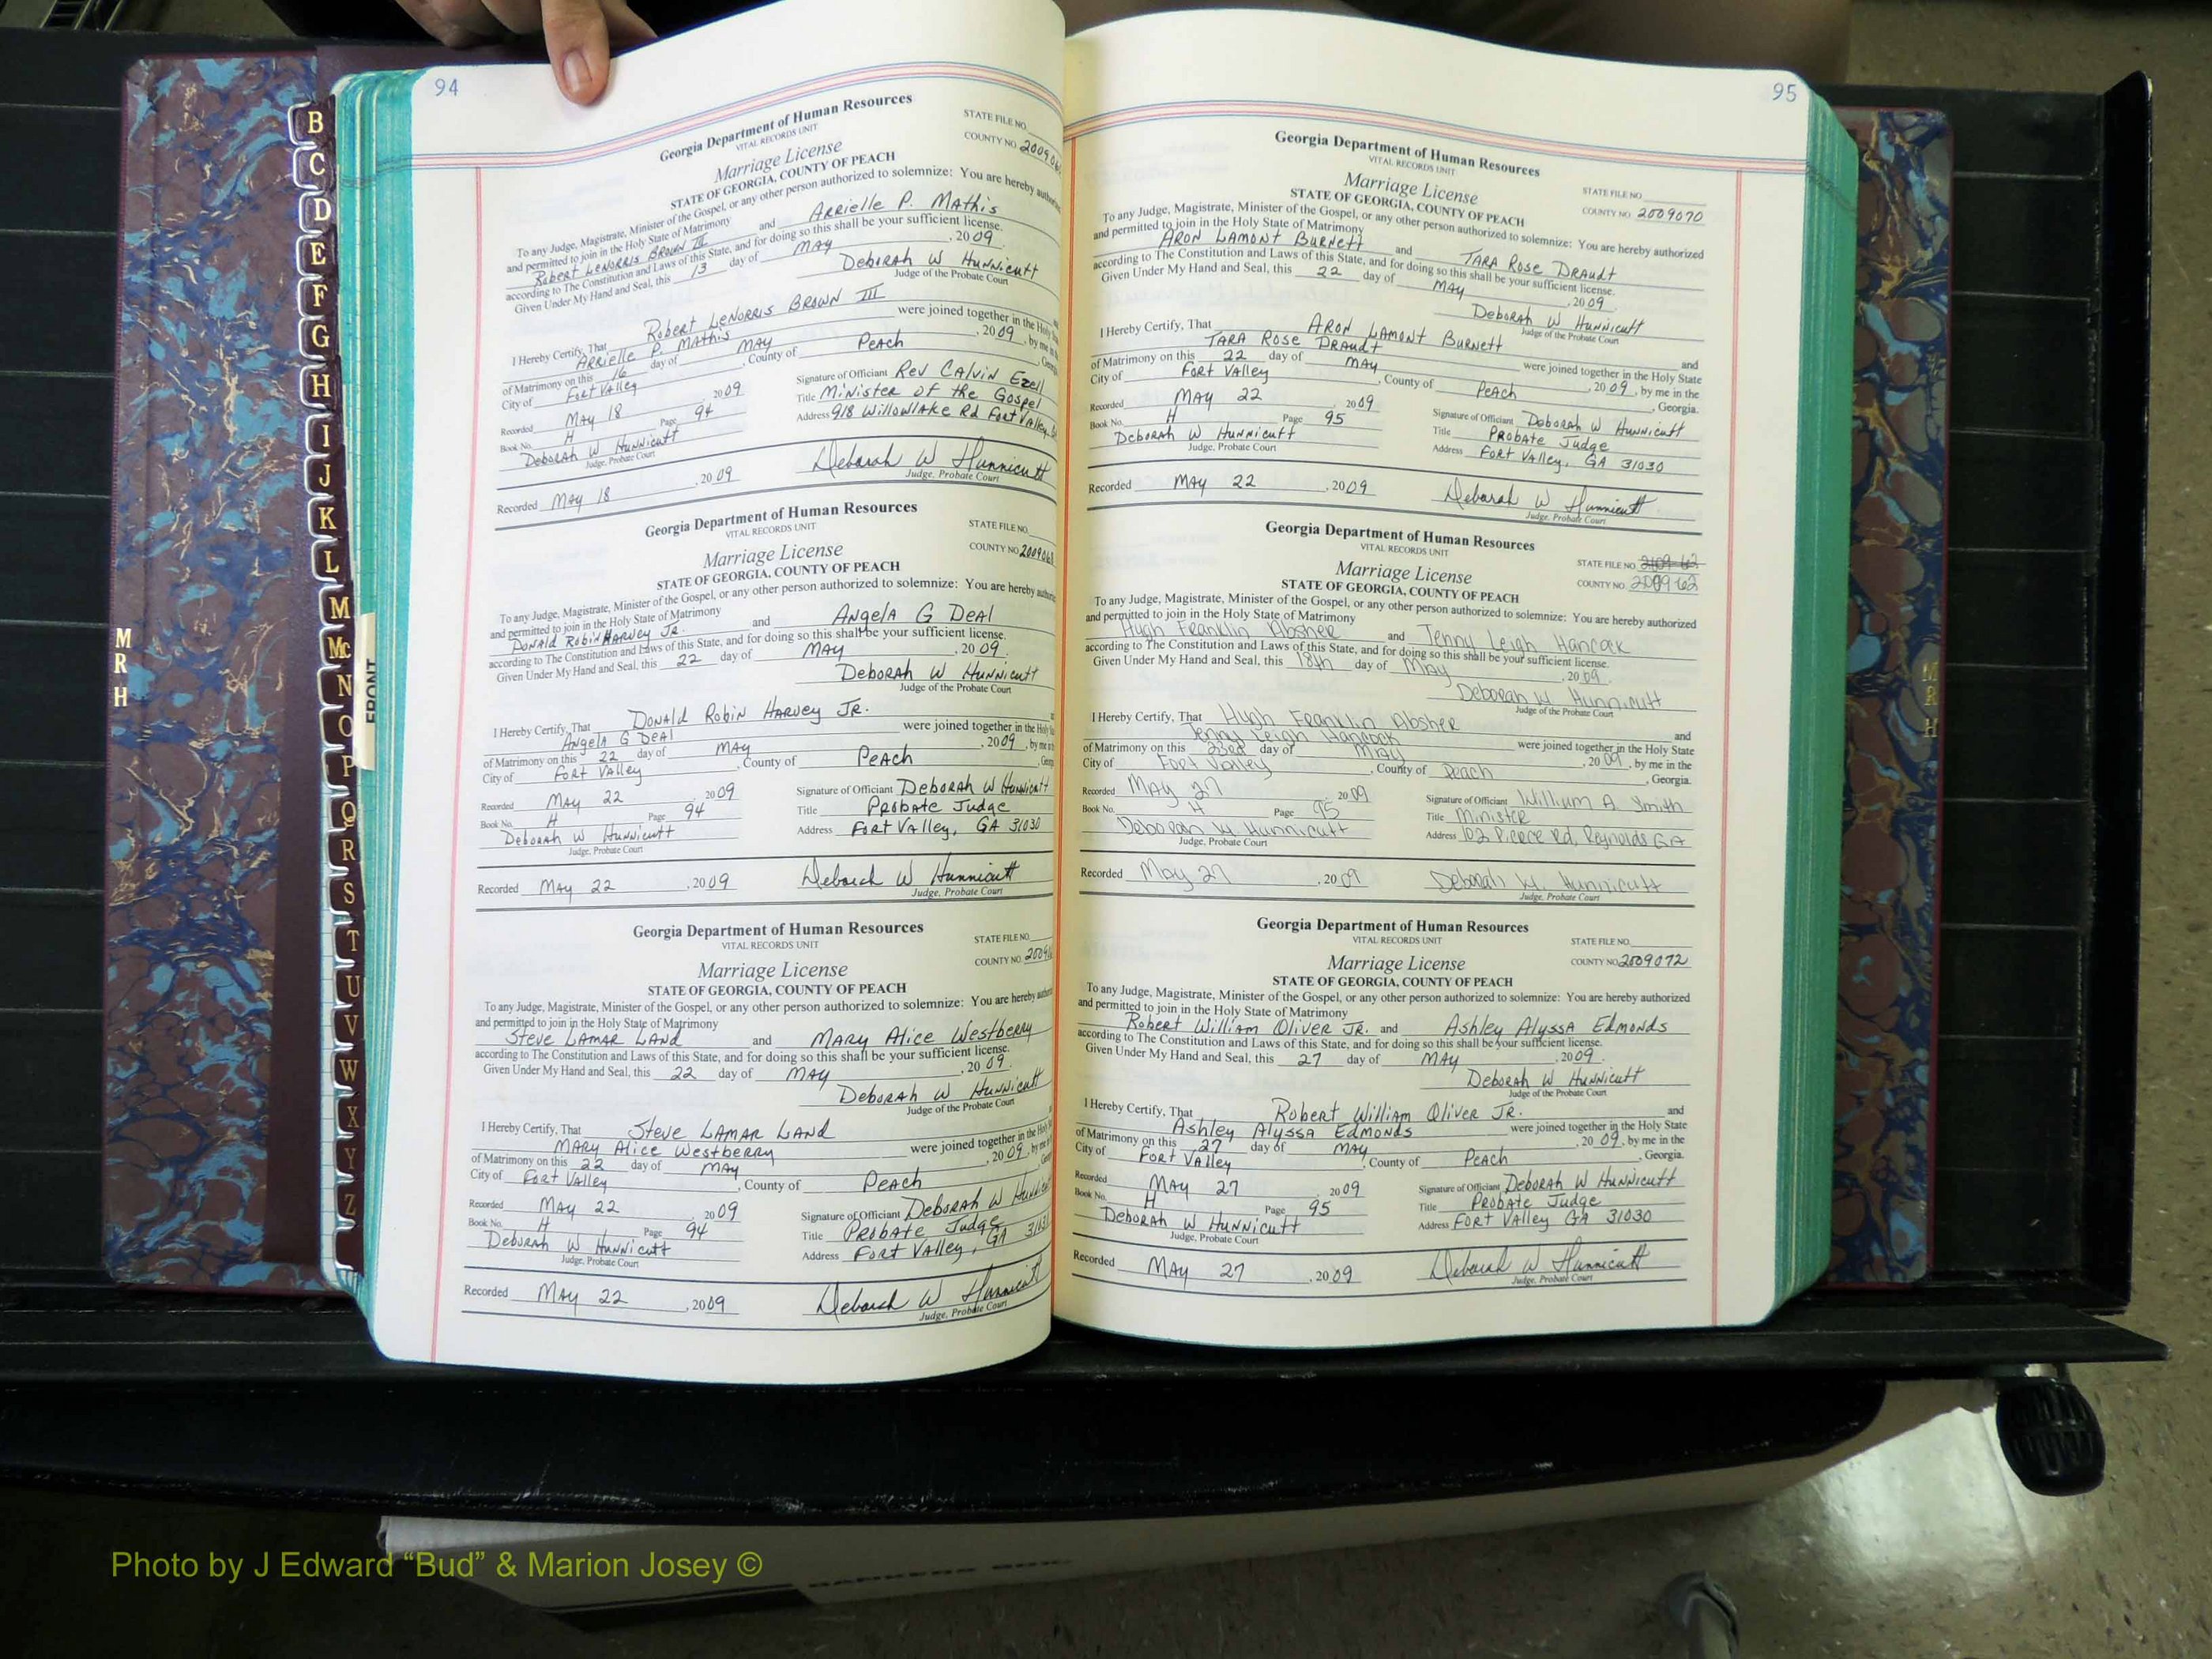 94
Georgia Department of Human Resources
VITAL RECORDS UNIT
STATE FILE NO.
Marriage License
COUNTY NO. 200906
STATE OF GEORGIA, COUNTY OF PEACH
To any Judge, Magistrate, Minister of the Gospel, or any other person authorized to solemnize: You are hereby
and permitted to join in the Holy State of Matrimony
Robert LeNorris Brown III and Arrielle P. Mathis
according to The Constitution and Laws of this State, and for doing so this shall be your sufficient license.
Given Under My Hand and Seal, this 13 day of May, 2009.
Deborah W Hunnicutt
Judge of the Probate Court
I Hereby Certify, That Robert LeNorris Brown III
Arrielle P. Mathis were joined together in the Holy
of Matrimony on this 16 day of May, 2009, by me in
City of Fort Valley, County of Peach
Recorded May 18 2009 Signature of Officiant Rev Calvin Ezell
Book No. H Page 94 Title Minister of the Gospel
Deborah W Hunnicutt Address 918 Willowlake Rd Fort Valley
Judge, Probate Court
Recorded May 18, 2009 Deborah W Hunnicutt
Judge, Probate Court
Georgia Department of Human Resources
VITAL RECORDS UNIT
STATE FILE NO.
Marriage License
COUNTY NO. 200906
STATE OF GEORGIA, COUNTY OF PEACH
To any Judge, Magistrate, Minister of the Gospel, or any other person authorized to solemnize: You are hereby
and permitted to join in the Holy State of Matrimony
Donald Robin Harvey Jr. and Angela G Deal
according to The Constitution and Laws of this State, and for doing so this shall be your sufficient license.
Given Under My Hand and Seal, this 22 day of May, 2009.
Deborah W Hunnicutt
Judge of the Probate Court
I Hereby Certify, That Donald Robin Harvey Jr.
Angela G Deal were joined together in the Holy
of Matrimony on this 22 day of May, 2009, by me
City of Fort Valley, County of Peach
Recorded May 22 2009 Signature of Officiant Deborah W Hunnicutt
Book No. H Page 94 Title Probate Judge
Deborah W Hunnicutt Address Fort Valley, GA 31030
Judge, Probate Court
Recorded May 22, 2009 Deborah W Hunnicutt
Judge, Probate Court
Georgia Department of Human Resources
VITAL RECORDS UNIT
STATE FILE NO.
Marriage License
COUNTY NO. 2009
STATE OF GEORGIA, COUNTY OF PEACH
To any Judge, Magistrate, Minister of the Gospel, or any other person authorized to solemnize: You are hereby
and permitted to join in the Holy State of Matrimony
Steve Lamar Land and Mary Alice Westberry
according to The Constitution and Laws of this State, and for doing so this shall be your sufficient license.
Given Under My Hand and Seal, this 22 day of May, 2009.
Deborah W Hunnicutt
Judge of the Probate Court
I Hereby Certify, That Steve Lamar Land
Mary Alice Westberry were joined together in the Holy
of Matrimony on this 22 day of May, 2009, by me
City of Fort Valley, County of Peach
Recorded May 22 2009 Signature of Officiant Deborah W
Book No. H Page 94 Title Probate Judge
Deborah W Hunnicutt Address Fort Valley, GA
Judge, Probate Court
Recorded May 22, 2009 Deborah W Hunnicutt
Judge, Probate Court
95
Georgia Department of Human Resources
VITAL RECORDS UNIT
STATE FILE NO.
Marriage License
COUNTY NO. 2009070
STATE OF GEORGIA, COUNTY OF PEACH
To any Judge, Magistrate, Minister of the Gospel, or any other person authorized to solemnize: You are hereby authorized
and permitted to join in the Holy State of Matrimony
Aron Lamont Burnett and Tara Rose Draudt
according to The Constitution and Laws of this State, and for doing so this shall be your sufficient license.
Given Under My Hand and Seal, this 22 day of May, 2009.
Deborah W Hunnicutt
Judge of the Probate Court
I Hereby Certify, That Aron Lamont Burnett and
Tara Rose Draudt were joined together in the Holy State
of Matrimony on this 22 day of May, 2009, by me in the
City of Fort Valley, County of Peach, Georgia.
Recorded May 22 2009 Signature of Officiant Deborah W Hunnicutt
Book No. H Page 95 Title Probate Judge
Deborah W Hunnicutt Address Fort Valley, GA 31030
Judge, Probate Court
Recorded May 22, 2009 Deborah W Hunnicutt
Judge, Probate Court
Georgia Department of Human Resources
VITAL RECORDS UNIT
STATE FILE NO.
Marriage License
COUNTY NO.
STATE OF GEORGIA, COUNTY OF PEACH
To any Judge, Magistrate, Minister of the Gospel, or any other person authorized to solemnize: You are hereby authorized
and permitted to join in the Holy State of Matrimony
Hugh Franklin Absher and Jenny Leigh Hancock
according to The Constitution and Laws of this State, and for doing so this shall be your sufficient license.
Given Under My Hand and Seal, this 18th day of May, 2009.
Deborah W. Hunnicutt
Judge of the Probate Court
I Hereby Certify, That Hugh Franklin Absher and
Jenny Leigh Hancock were joined together in the Holy State
of Matrimony on this 23rd day of May, 2009, by me in the
City of Fort Valley, County of Peach, Georgia.
Recorded May 27 2009 Signature of Officiant William A Smith
Book No. H Page 95 Title Minister
Deborah W Hunnicutt Address 102 Pierce Rd, Reynolds GA
Judge, Probate Court
Recorded May 27, 2009 Deborah W. Hunnicutt
Judge, Probate Court
Georgia Department of Human Resources
VITAL RECORDS UNIT
STATE FILE NO.
Marriage License
COUNTY NO. 2009072
STATE OF GEORGIA, COUNTY OF PEACH
To any Judge, Magistrate, Minister of the Gospel, or any other person authorized to solemnize: You are hereby authorized
and permitted to join in the Holy State of Matrimony
Robert William Oliver Jr. and Ashley Alyssa Edmonds
according to The Constitution and Laws of this State, and for doing so this shall be your sufficient license.
Given Under My Hand and Seal, this 27 day of May, 2009.
Deborah W Hunnicutt
Judge of the Probate Court
I Hereby Certify, That Robert William Oliver Jr. and
Ashley Alyssa Edmonds were joined together in the Holy State
of Matrimony on this 27 day of May, 2009, by me in the
City of Fort Valley, County of Peach, Georgia.
Recorded May 27 2009 Signature of Officiant Deborah W Hunnicutt
Book No. H Page 95 Title Probate Judge
Deborah W Hunnicutt Address Fort Valley GA 31030
Judge, Probate Court
Recorded May 27, 2009 Deborah W Hunnicutt
Judge, Probate Court
B
C
D
E
F
G
H
I
J
K
L
M
Mc
N
O
P
Q
R
S
T
U
V
W
X
Y
Z
FRONT
M
R
H
M
R
H
Photo by J Edward “Bud” & Marion Josey ©